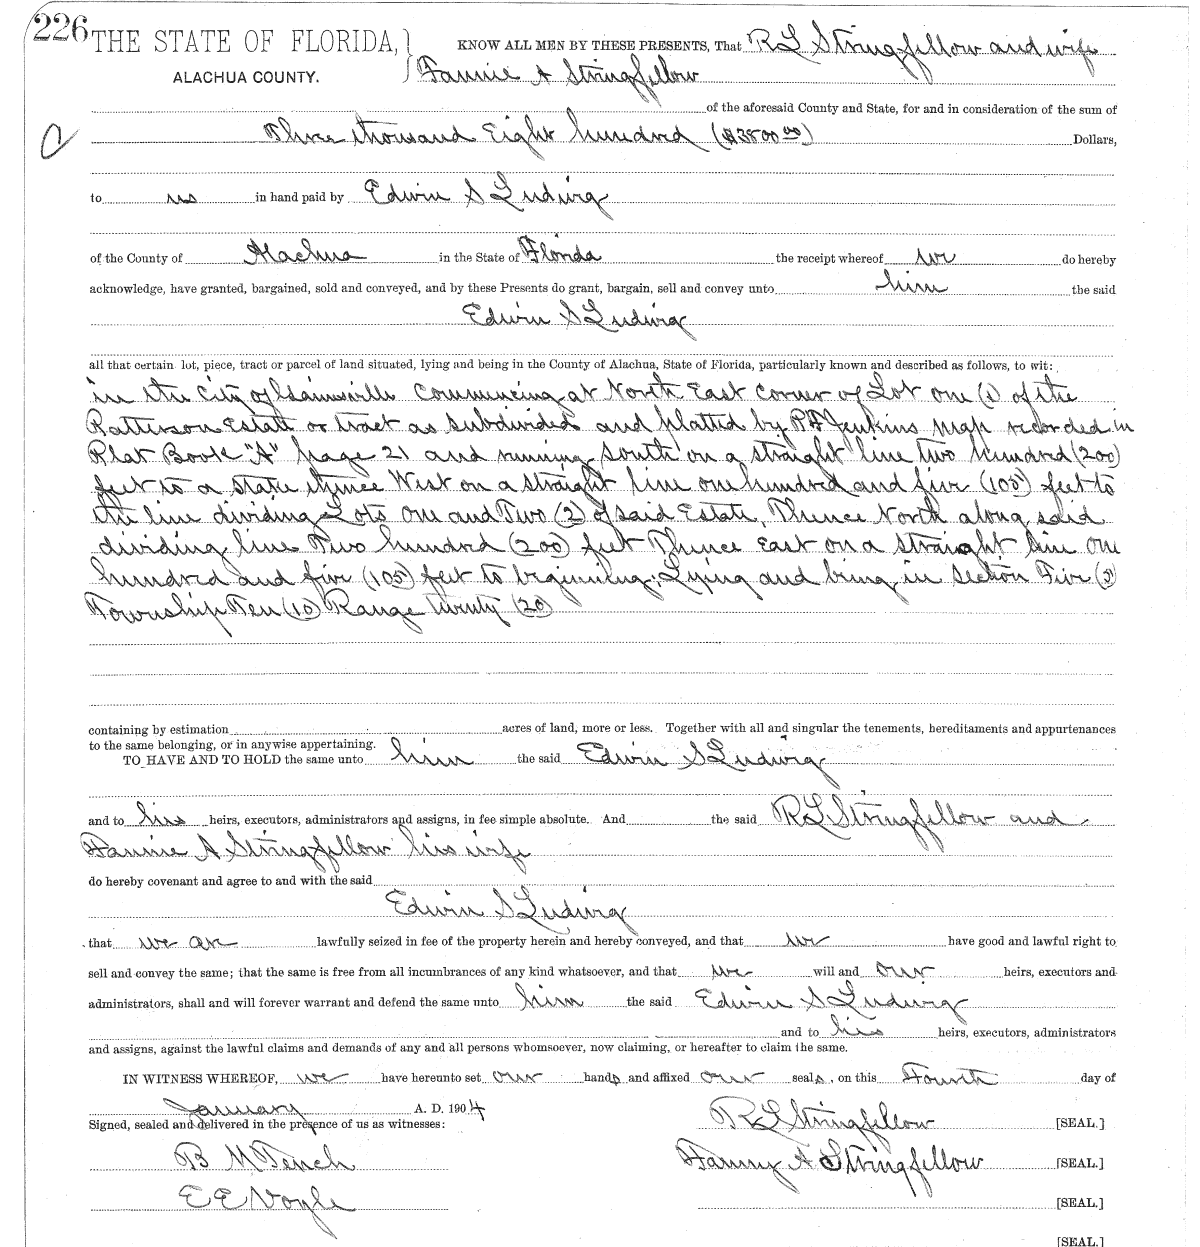 226 THE STATE OF FLORIDA, KNOW ALL MEN BY THESE PRESENTS, That R L Stringfellow and wife
ALACHUA COUNTY. Fannie A Stringfellow
of the aforesaid County and State, for and in consideration of the sum of
Three thousand Eight hundred ($3800.00) Dollars,
to us in hand paid by Edwin S Ludwig
of the County of Alachua in the State of Florida the receipt whereof we do hereby
acknowledge, have granted, bargained, sold and conveyed, and by these Presents do grant, bargain, sell and convey unto him the said
Edwin S Ludwig
all that certain lot, piece, tract or parcel of land situated, lying and being in the County of Alachua, State of Florida, particularly known and described as follows, to wit:
in the City of Gainsville Commencing at North East corner of Lot one (1) of the
Patterson Estate or tract as subdivided and platted by Jenkins map recorded in
Plat Book "A" page 21 and running south on a straight line two hundred (200)
feet to a stake thence West on a straight line one hundred and five (105) feet to
the line dividing Lots One and Two (2) of said Estate, Thence North along said
dividing line Two hundred (200) feet Thence East on a straight line One
hundred and five (105) feet to beginning. Lying and being in Section Five (5)
Township Ten (10) Range Twenty (20)
containing by estimation acres of land, more or less. Together with all and singular the tenements, hereditaments and appurtenances
to the same belonging, or in anywise appertaining.
TO HAVE AND TO HOLD the same unto him the said Edwin S Ludwig
and to his heirs, executors, administrators and assigns, in fee simple absolute. And the said R L Stringfellow and
Fannie A Stringfellow his wife
do hereby covenant and agree to and with the said
Edwin S Ludwig
that we are lawfully seized in fee of the property herein and hereby conveyed, and that we have good and lawful right to
sell and convey the same; that the same is free from all incumbrances of any kind whatsoever, and that we will and our heirs, executors and
administrators, shall and will forever warrant and defend the same unto him the said Edwin S Ludwig
and to his heirs, executors, administrators
and assigns, against the lawful claims and demands of any and all persons whomsoever, now claiming, or hereafter to claim the same.
IN WITNESS WHEREOF, we have hereunto set our hands and affixed our seals, on this Fourth day of
January A. D. 1904
Signed, sealed and delivered in the presence of us as witnesses: R L Stringfellow [SEAL.]
B M Tench Fanny A Stringfellow [SEAL.]
E E Voyle [SEAL.]
[SEAL.]